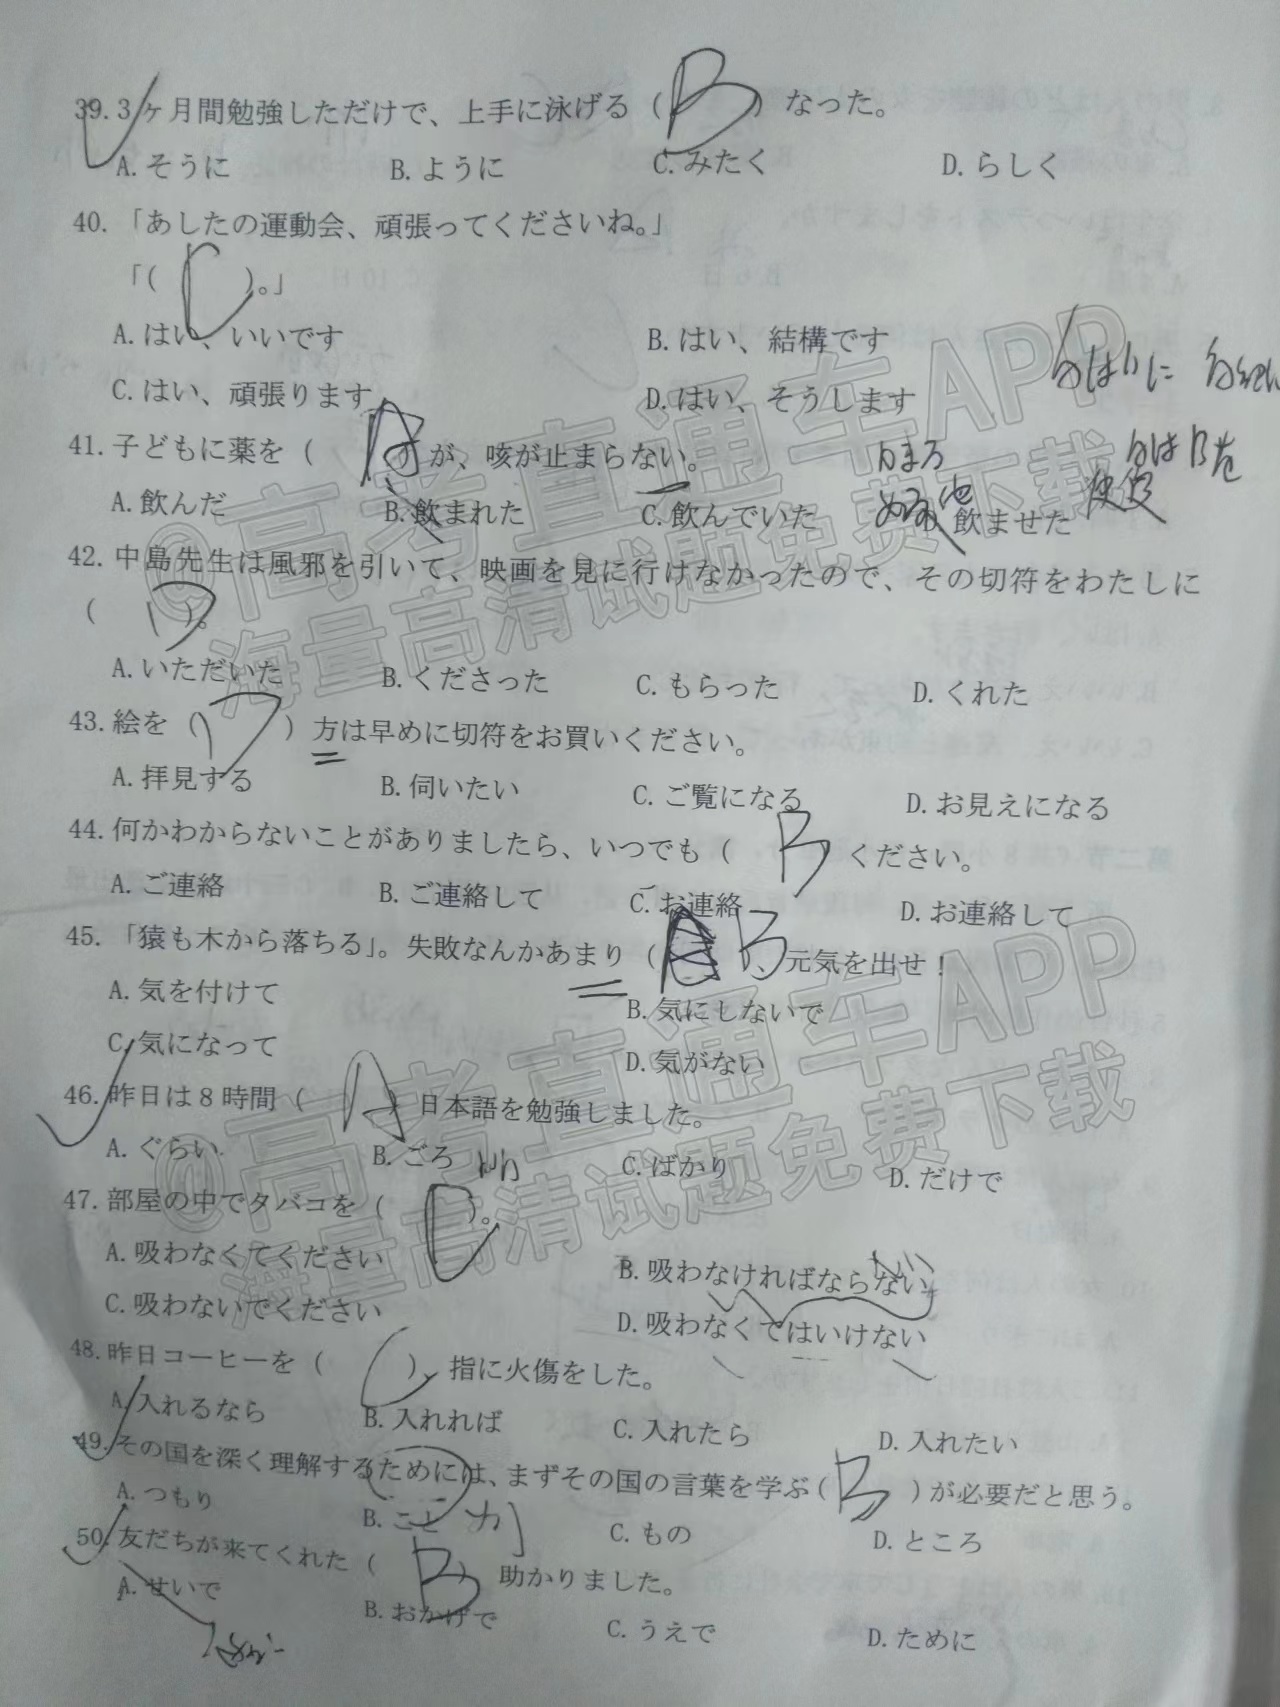 39. 3ヶ月間勉強しただけで、上手に泳げる（ B ）なった。
A. そうに B. ように C. みたく D. らしく
40. 「あしたの運動会、頑張ってくださいね。」
「（ C ）。」
A. はい、いいです B. はい、結構です
C. はい、頑張ります D. はい、そうします
41. 子どもに薬を（ A ）が、咳が止まらない。
A. 飲んだ B. 飲まれた C. 飲んでいた 飲ませた
42. 中島先生は風邪を引いて、映画を見に行けなかったので、その切符をわたしに
（ D ）。
A. いただいた B. くださった C. もらった D. くれた
43. 絵を（ D ）方は早めに切符をお買いください。
A. 拝見する B. 伺いたい C. ご覧になる D. お見えになる
44. 何かわからないことがありましたら、いつでも（ B ください。
A. ご連絡 B. ご連絡して C. お連絡 D. お連絡して
45. 「猿も木から落ちる」。失敗なんかあまり（ B 、元気を出せ！
A. 気を付けて B. 気にしないで
C. 気になって D. 気がない
46. 昨日は8時間（ A ）日本語を勉強しました。
A. ぐらい B. ごろ C. ばかり D. だけで
47. 部屋の中でタバコを（ C ）。
A. 吸わなくてください B. 吸わなければならない
C. 吸わないでください D. 吸わなくてはいけない
48. 昨日コーヒーを（ C ）、指に火傷をした。
A. 入れるなら B. 入れれば C. 入れたら D. 入れたい
49. その国を深く理解するためには、まずその国の言葉を学ぶ（ B ）が必要だと思う。
A. つもり B. こと C. もの D. ところ
50. 友だちが来てくれた（ B ）助かりました。
A. せいで B. おかげで C. うえで D. ために
@高考直通车APP
海量高清试题免费下载
@高考直通车APP
海量高清试题免费下载